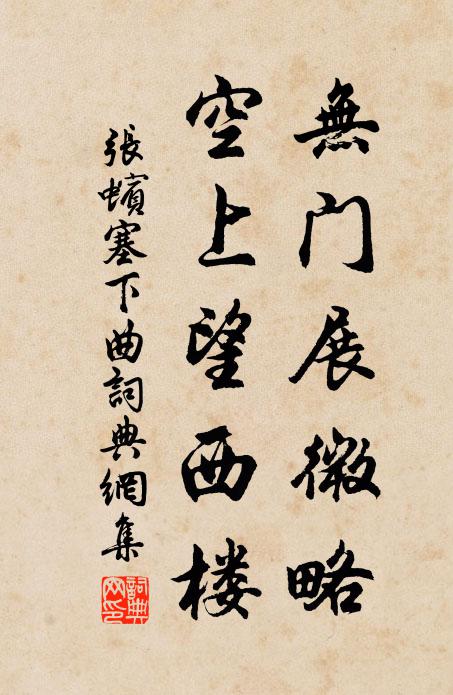 無门展微略
空上望西楼
張蠙塞下曲詞典網集
詞典网印